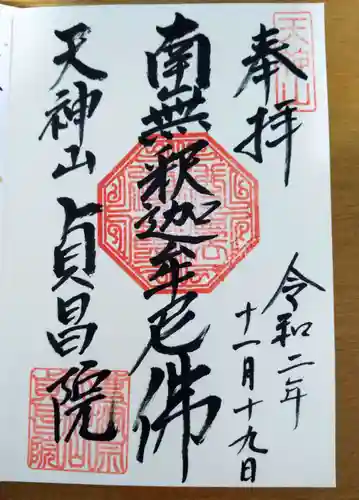 奉拝
天神山
令和二年
十一月十九日
南無釈迦牟尼佛
天神山
貞昌院